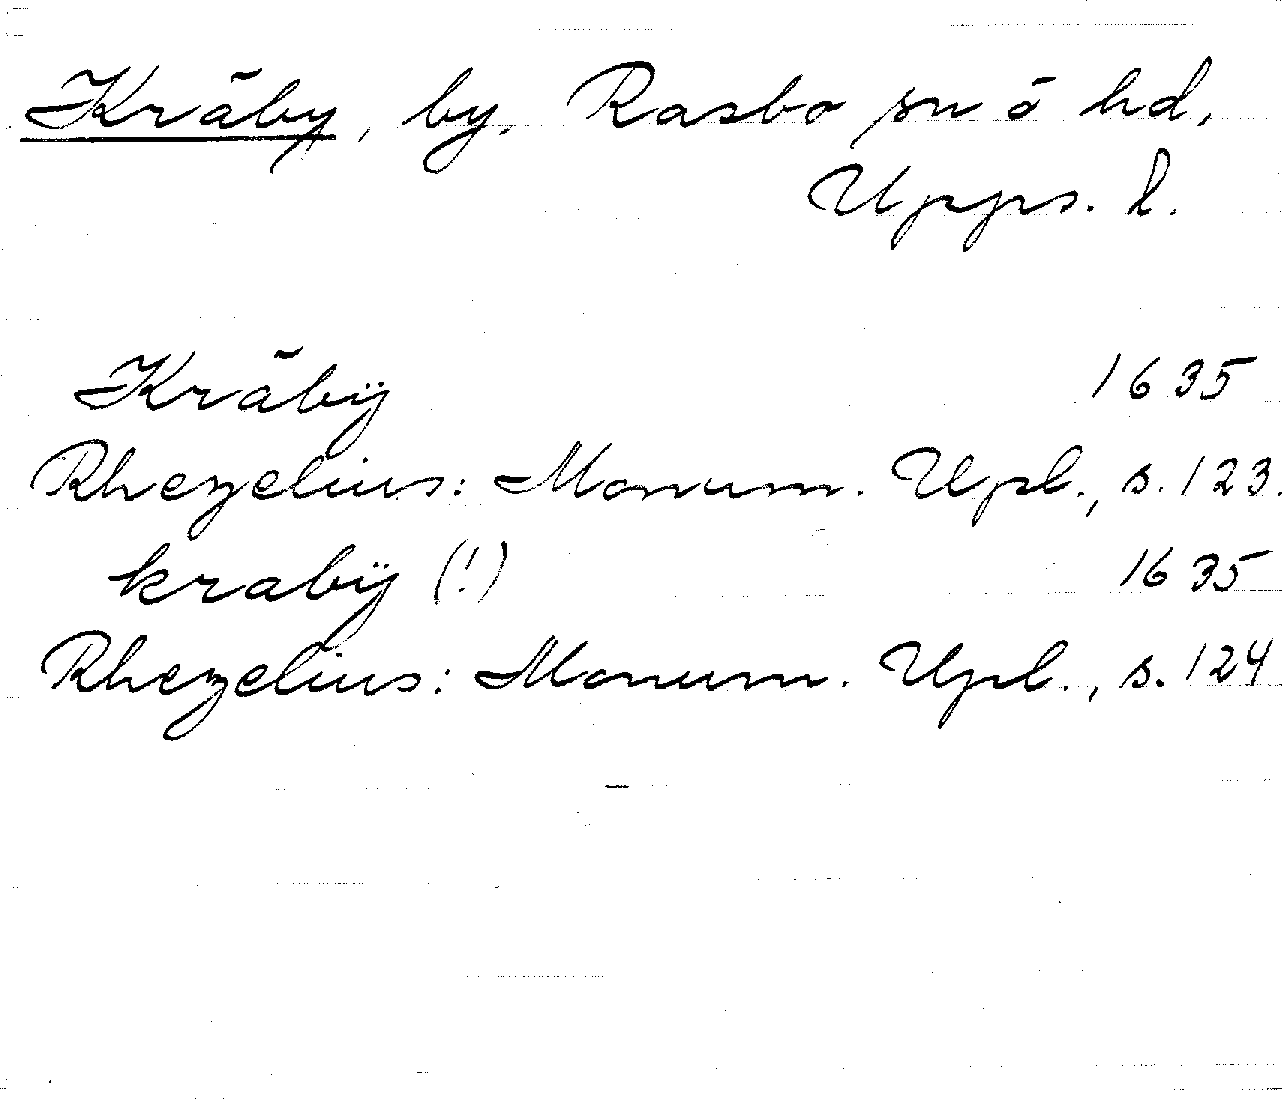 Kräby, by, Rasbo sn o hd,
Upps. l.
Kräbÿ 1635
Rhezelius: Monum. Upl., s. 123.
krabÿ (!) 1635
Rhezelius: Monum. Upl., s. 124